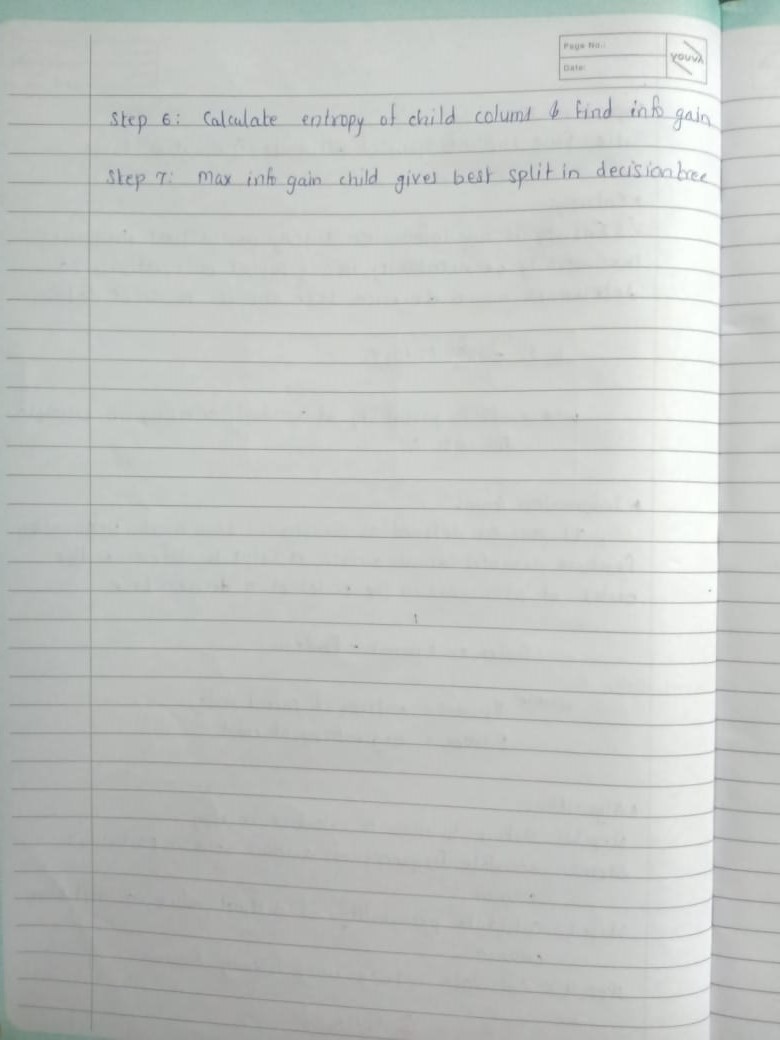 Page No.:
Date:
YOUVA
Step 6: Calculate entropy of child colums & find info gain
Step 7: Max info gain child gives best split in decision tree